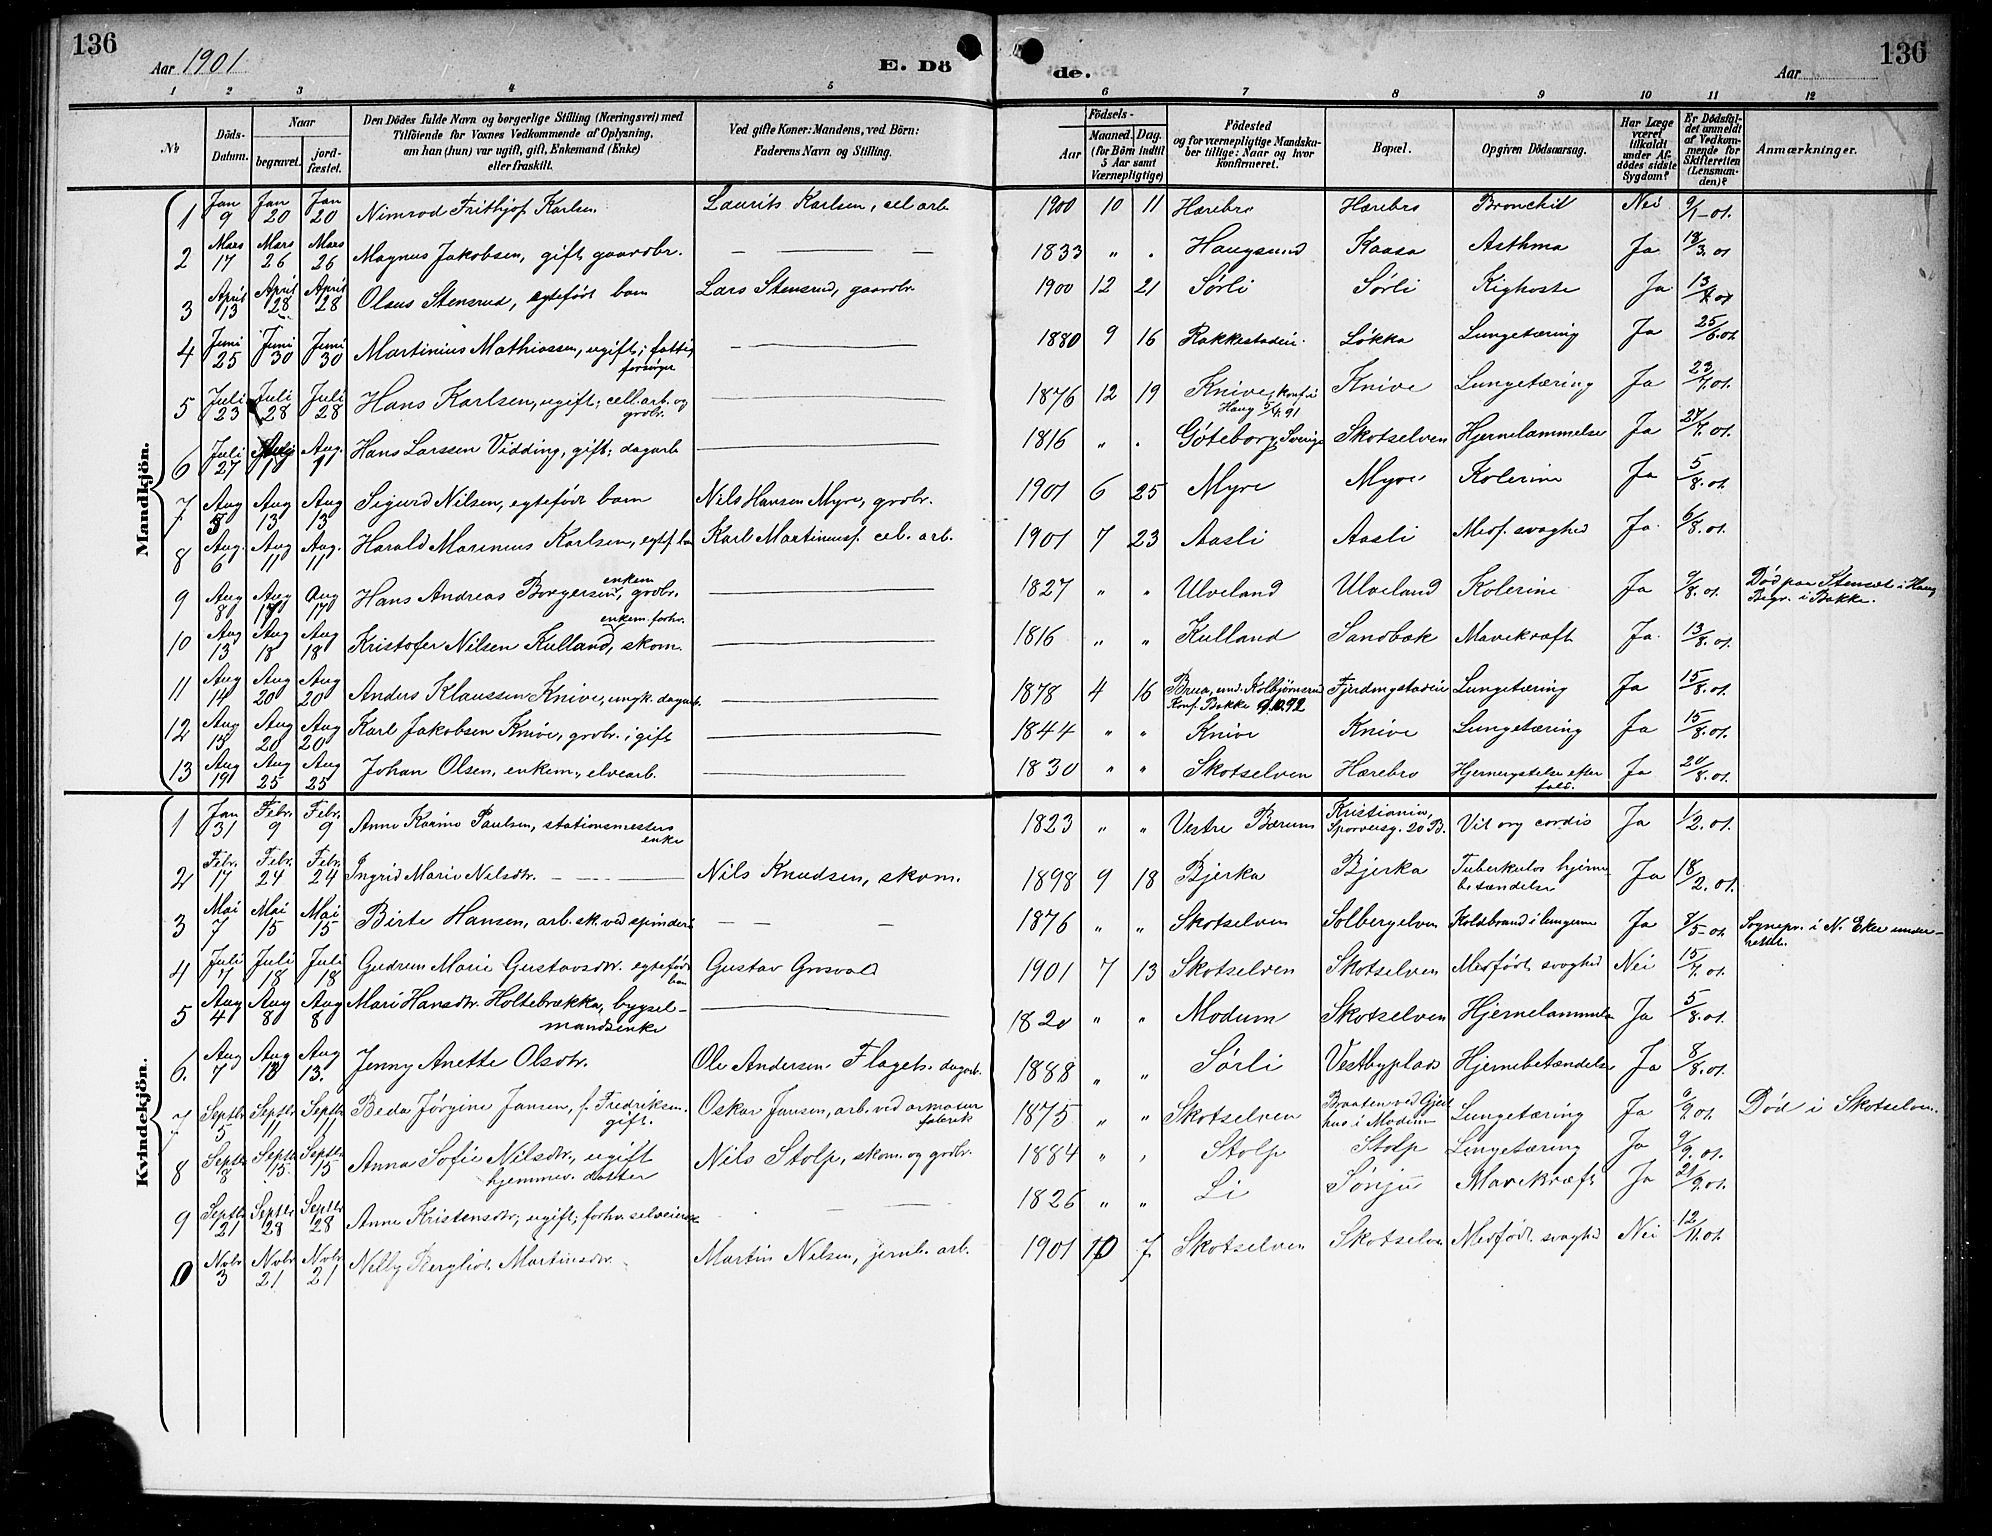 136
Aar 1901
E. Dö
de.
Aar
136
1 2 3 4 5 6 7 8 9 10 11 12
№
Döds-Datum.
Naar
begravet.
jord-fæstet.
Den Dödes fulde Navn og borgerlige Stilling (Næringsvei) med
Tilföiende for Voxnes Vedkommende af Oplysning,
om han (hun) var ugift, gift, Enkemand (Enke)
eller fraskilt.
Ved gifte Koner: Mandens, ved Börn:
Faderens Navn og Stilling.
Födsels-
Aar
Maaned.
Dag.
(for Börn indtil
5 Aar samt
Værnepligtige)
Födested
og for værnepligtige Mandska-
ber tillige: Naar og hvor
konfirmeret.
Bopæl.
Opgiven Dödsaarsag.
Har Læge
været
tilkaldt
under Af-
dödes sidste
Sygdom?
Er Dödsfal-
det anmeldt
af Vedkom-
mende for
Skifteretten
(Lensman-
den)?
Anmærkninger.
Mandkjön.
1 Jan 9 Jan 20 Jan 20 Nimrod Frithjof Karlsen Laurits Karlsen, cel. arb. 1900 10 11 Hærebro Hærebro Bronchit Nei 9/1-01.
2 Mars 17 Mars 26 Mars 26 Magnus Jakobsen, gift, gaardbr. — — — 1833 " . Haugsund Kaasa Asthma Ja 18/3. 01
3 April 13 April 28 April 28 Olaus Stensrud, egtefødt barn Lars Stensrud, gaardbr. 1900 12 21 Sørli Sørli Kighoste Ja 13/4 01
4 Juni 25 Juni 30 Juni 30 Martinius Mathiassen, ugift; fattig
forsørget — 1880 9 16 Rakkestadeie Løkka Lungetæring Ja 25/6.01
5 Juli 23 Juli 28 Juli 28 Hans Karlsen, ugift; cell. arb. og
grdbr. — 1876 12 19 Knive, konf. i
Haug 5/4.91 Knive Lungetæring Ja 23/7.01.
6 Juli 27 Aug 1 Aug. 1 Hans Larssen Vidding, gift; dagarb — 1816 " . Göteborg, Sverige Skotselven Hjernelammelse Ja 27/7.01.
7 Aug 5 Aug 13 Aug 13 Sigurd Nilsen, egtefødt barn Nils Hansen Myre, grdbr. 1901 6 25 Myre Myre Kolerine Ja 5/8.01.
8 Aug. 6 Aug 11 Aug. 11 Harald Marenius Karlsen, egtf. barn Karl Martinius, cel. arb. 1901 7 23 Aasli Aasli Medf. svaghed Ja. 6/8.01.
9 Aug 8 Aug 17 Aug 17 Hans Andreas Borgersen, enkem grdbr. — 1827 " " Ulveland Ulveland Kolerine Ja 9/8.01. Død paa Stenset i Haug
Begr. i Bakke.
10 Aug 13 Aug 18 Aug 18 Kristofer Nilsen Kulland, enkem. forhv. skom. — 1816 " " Kulland Sandbæk Mavekræft Ja. 13/8.01.
11 Aug 14 Aug 20 Aug 20 Anders Klaussen Knive, ungk. dagarb. — 1878 4 16 Brua, und. Kolbjørnsrud
Konf. Bakke 9.10.92 Fjerdingstadeie Lungetæring Ja 15/8.01.
12 Aug 15 Aug 20 Aug 20 Karl Jakobsen Knive, grdbr. ; gift — 1844 " " Knive Knive Lungetæring Ja 15/8.01.
13 Aug 19 Aug 25 Aug 25 Johan Olsen, enkem., elvearb. — 1830 " " Skotselven Hærebro Hjernerystelse efter
fald. Ja 20/8.01.
Kvindekjön.
1 Jan 31 Febr. 9 Febr. 9 Anne Karine Paulsen, stationsmesters
enke 1823 " " Vestre Bærum Kristiania,
Sporveisg. 20 B. Vit org cordis Ja 1/2.01.
2 Febr. 17 Febr. 24 Febr. 24 Ingrid Marie Nilsdtr. — — — Nils Knudsen, skom. 1898 9 18 Bjerka Bjerka Tuberkulos hjerne
betændelse Ja 18/2.01.
3 Mai 7 Mai 15 Mai 15 Birte Hansen, arb.sk. ved spinderi — — 1876 " " Skotselven Solbergelven Koldbrand i lungerne Ja 8/5-01. Sognepr. i N. Eker under-
rettet.
4 Juli 7 Juli 18 Juli 18 Gudrun Marie Gustavsdtr. egtefødt
barn Gustav Grisvold 1901 7 13 Skotselven Skotselven Medfødt svaghed Nei 15/7.01.
5 Aug 4 Aug 8 Aug 8 Mari Hansdtr. Holtebrækka, bygsel-
mandsenke — 1820 " " Modum Skotselven Hjernelammelse Ja 5/8.01.
6. Aug 7 Aug 13 Aug 13. Jenny Anette Olsdtr. Ole Andersen Flaget. dagarb. 1888 " " Sørli Vestbyplads Hjernebetændelse Ja 8/8.01.
7 Septbr 5 Septbr 11 Septbr 11 Beda Jørgine Jansen, f. Fredriksen.
gift. Oskar Jansen, arb. ved armatur
fabrik 1875 " " Skotselven Braaten ved Gjeit-
hus i Modum Lungetæring Ja 9/9.01. Død i Skotselven.
8 Septbr 8 Septbr 15 Septbr 15 Anna Sofie Nilsdtr., ugift
hjemmev. datter Nils Stolp, skom. og grdbr. 1884 " " Stolp Stolp Lungetæring Ja 9/9.01.
9 Septbr 21 Septbr 28 Septbr 28 Anne Kristensdtr; ugift; forhv. selveierske — — 1826 " " Li Sønju Mavekræft Ja 21/9.01.
10 Novbr 3 Novbr 21 Novbr 21 Nelly Bergliot Martinsdtr. Martin Nilsen, jernb. arb. 1901 10 7 Skotselven Skotselven Medfødt svaghed Nei 12/11.01.